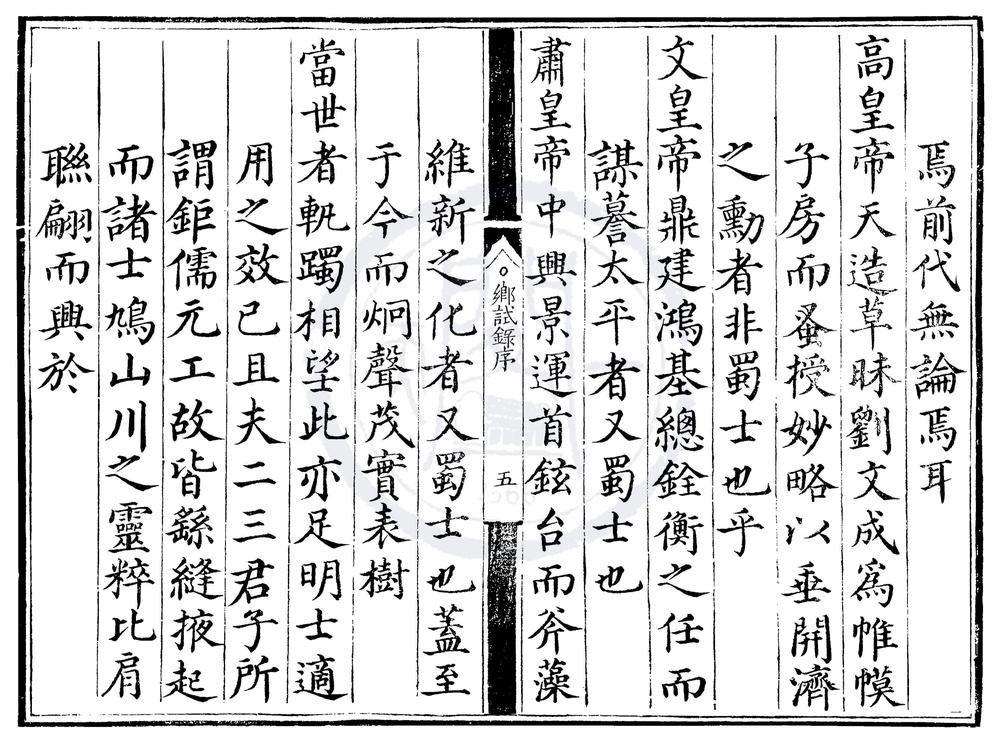 焉前代無論焉耳
高皇帝天造草昧劉文成爲帷幙
子房而蚤授妙略以垂開濟
之勳者非蜀士也乎
文皇帝鼎建鴻基總銓衡之任而
謀謩太平者又蜀士也
肅皇帝中興景運首鉉台而斧藻
鄉試錄序
五
維新之化者又蜀士也蓋至
于今而炯聲茂實表樹
當世者軏躅相望此亦足明士適
用之效已且夫二三君子所
謂鉅儒元工故皆繇縫掖起
而諸士鳩山川之靈粹比肩
聯翩而興於